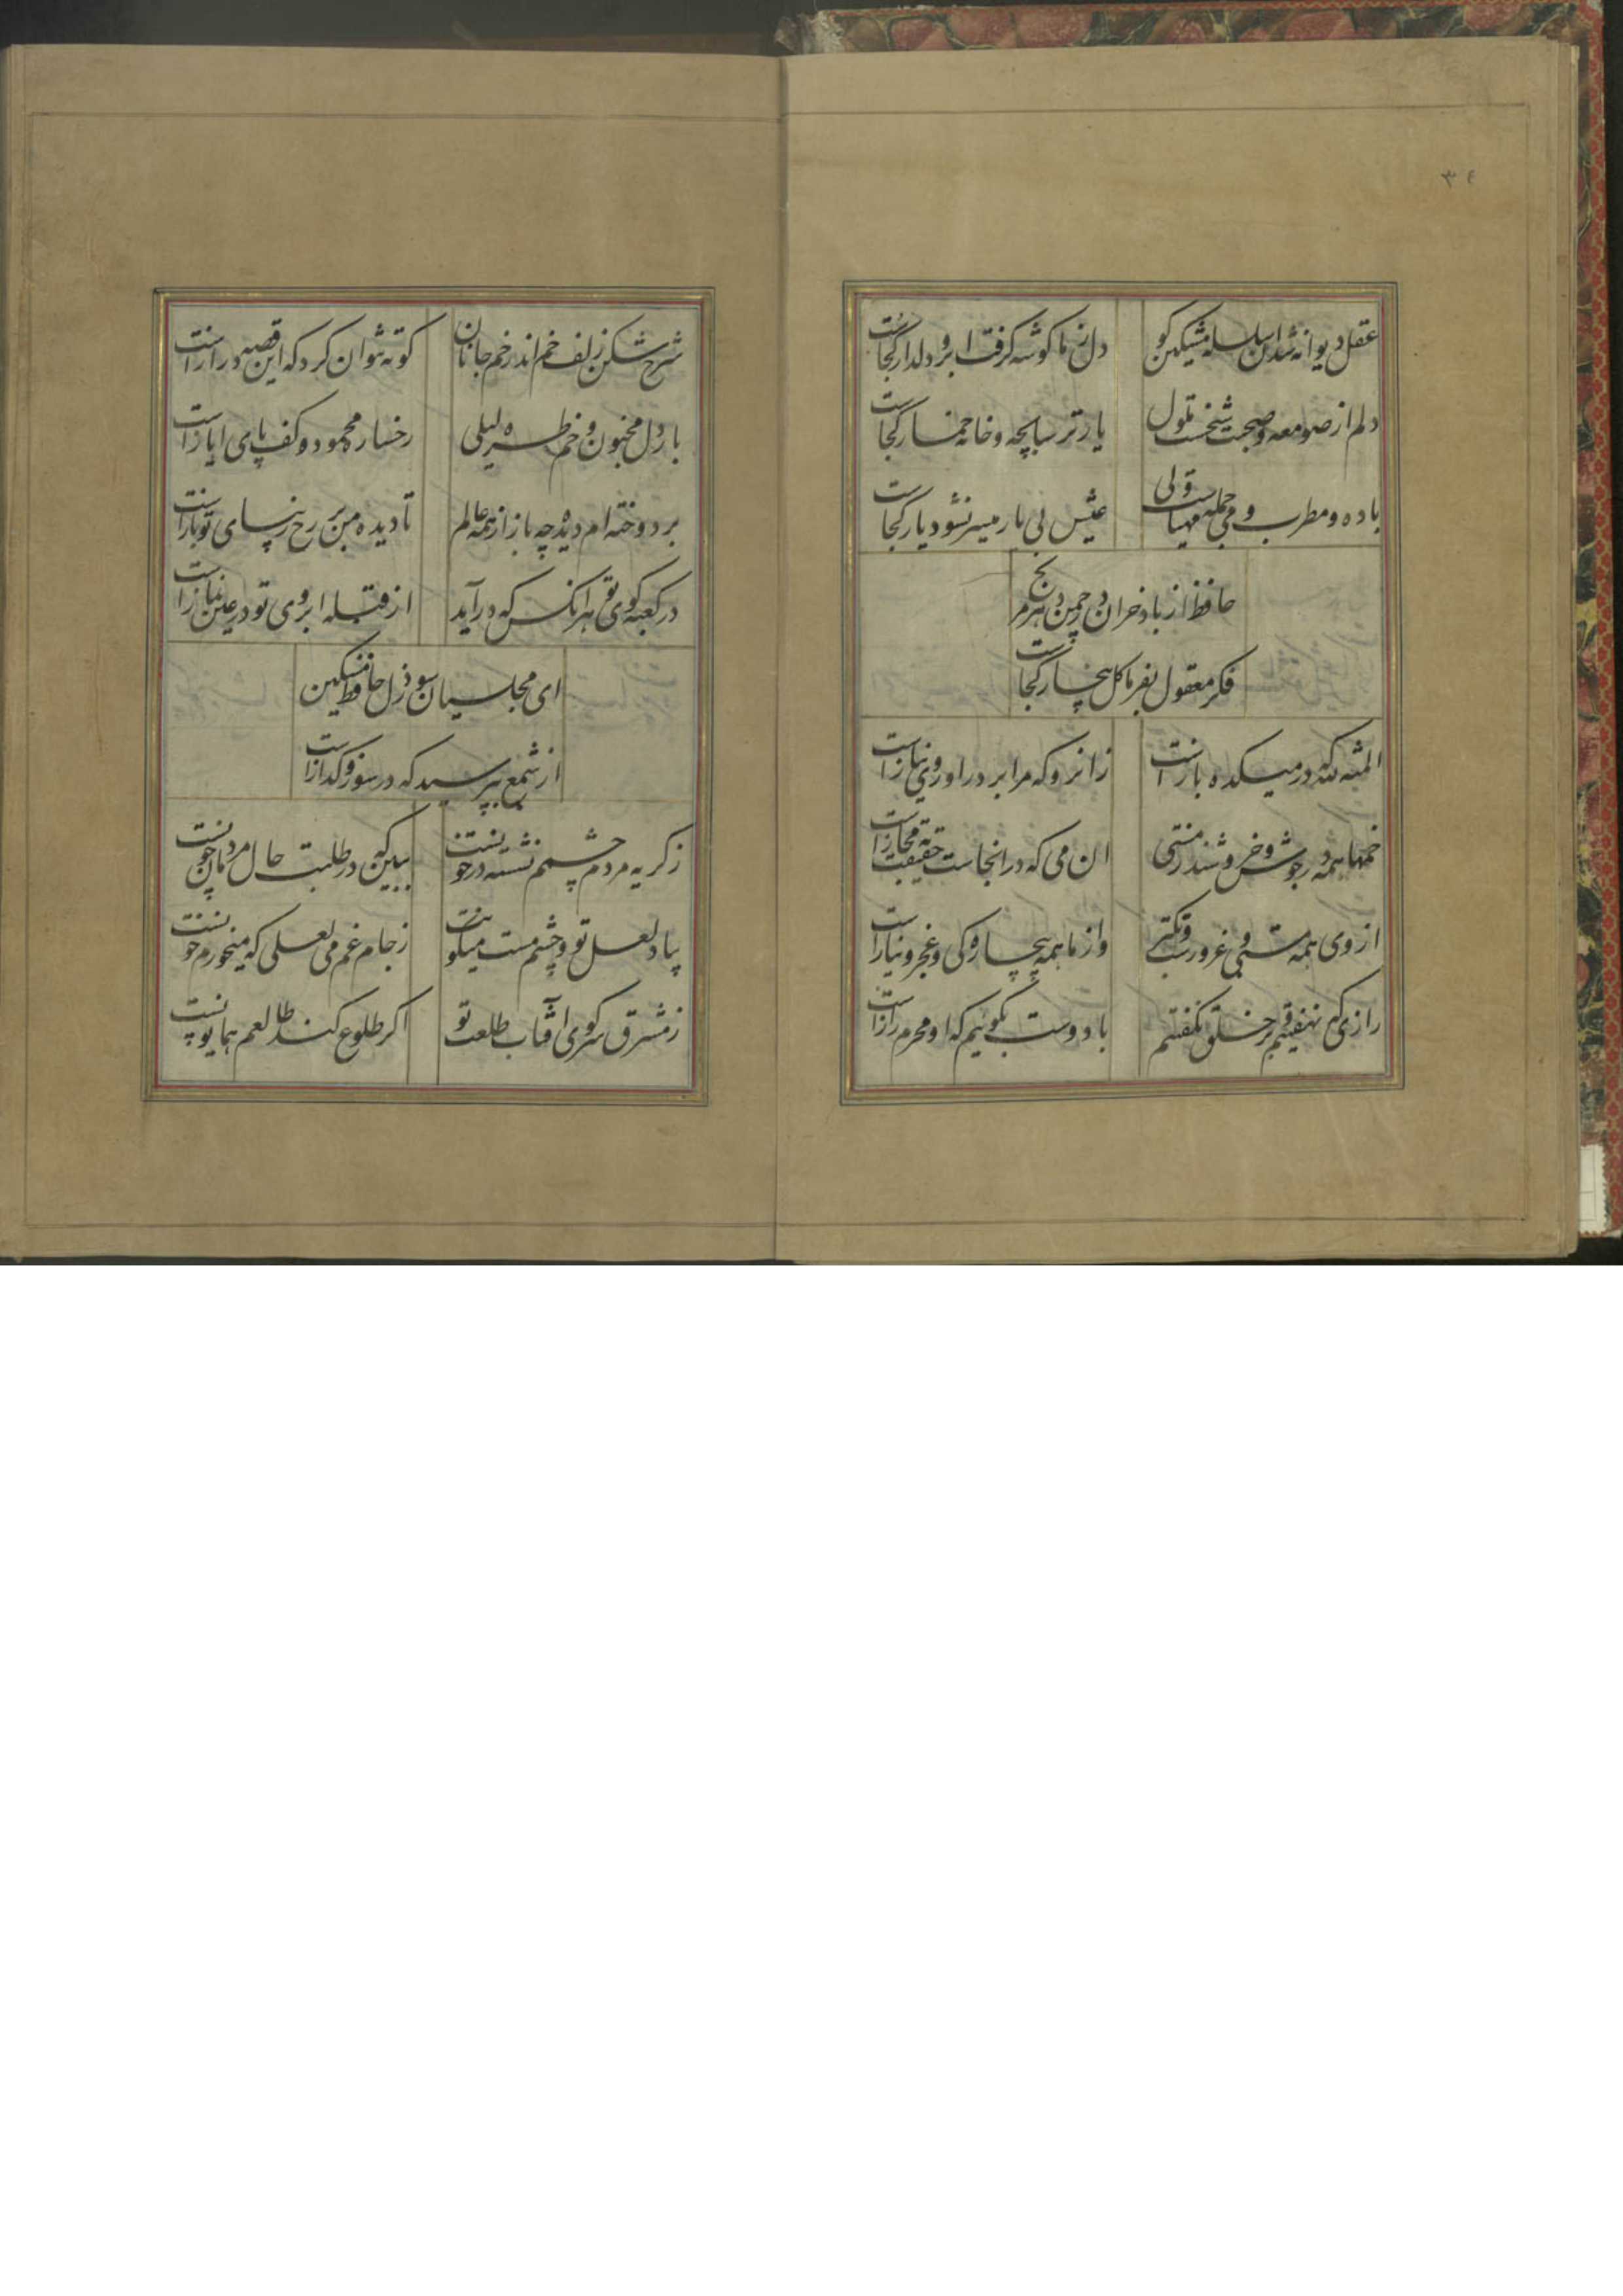 ۳۴
عقل دیوانه شد ان سلسله مشکین کو
دل ز ما کوشه کرفت ابروی دلدار کجاست
دلم از صومعه و صحبت شیخست ملول
یار ترسا بچه و خانه خمار کجاست
باده و مطرب و می جمله مهیاست ولی
عیش بی یار میسر نشود یار کجاست
حافظ از باد خزان در چمن دهر مرنج
فکر معقول بفرما کل بیخار کجاست
المنة لله که در میکده بازاست
زانرو که مرا بر در او روی نیازاست
خمها همه در جوش و خروشند ز مستی
ان می که در انجاست حقیقت نه مجازاست
از وی همه مستی و غرورست و تکبر
واز ما همه بیچاره کی و عجز و نیازاست
رازی که نهفتیم ز خلق نکفتیم
با دوست بکوئیم که او محرم رازاست
شرح شکن زلف خم اندر خم جانان
کوته نتوان کرد که این قصه درازاست
بار دل مجنون و خم طره لیلی
رخساره محمود و کف پای ایازاست
بر دوخته ام دیده چه باز از همه عالم
تا دیده من بر رخ زیبای تو بازاست
در کعبه کوی تو هر انکس که درآید
از قبله ابروی تو در عین نمازاست
ای مجلسیان سوز دل حافظ مسکین
از شمع بپرسید که در سوز و کدازاست
ز کریه مردم چشمم نشسته در خونست
ببین که در طلبت حال مردمان چونست
بیاد لعل تو و چشم مست میکونت
ز جام غم می لعلی که میخورم خونست
ز مشرق سر کوی افتاب طلعت تو
اکر طلوع کند طالعم همایونست